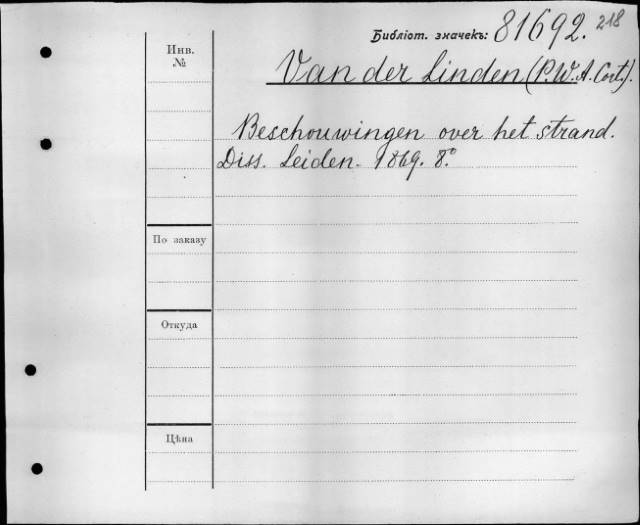 Библіот. значекъ: 81692. 218
Инв.
№
Van der Linden (P.W.A. Cort.).
Beschouwingen over het strand.
Diss. Leiden. 1869. 8.°
По заказу
Откуда
Цѣна